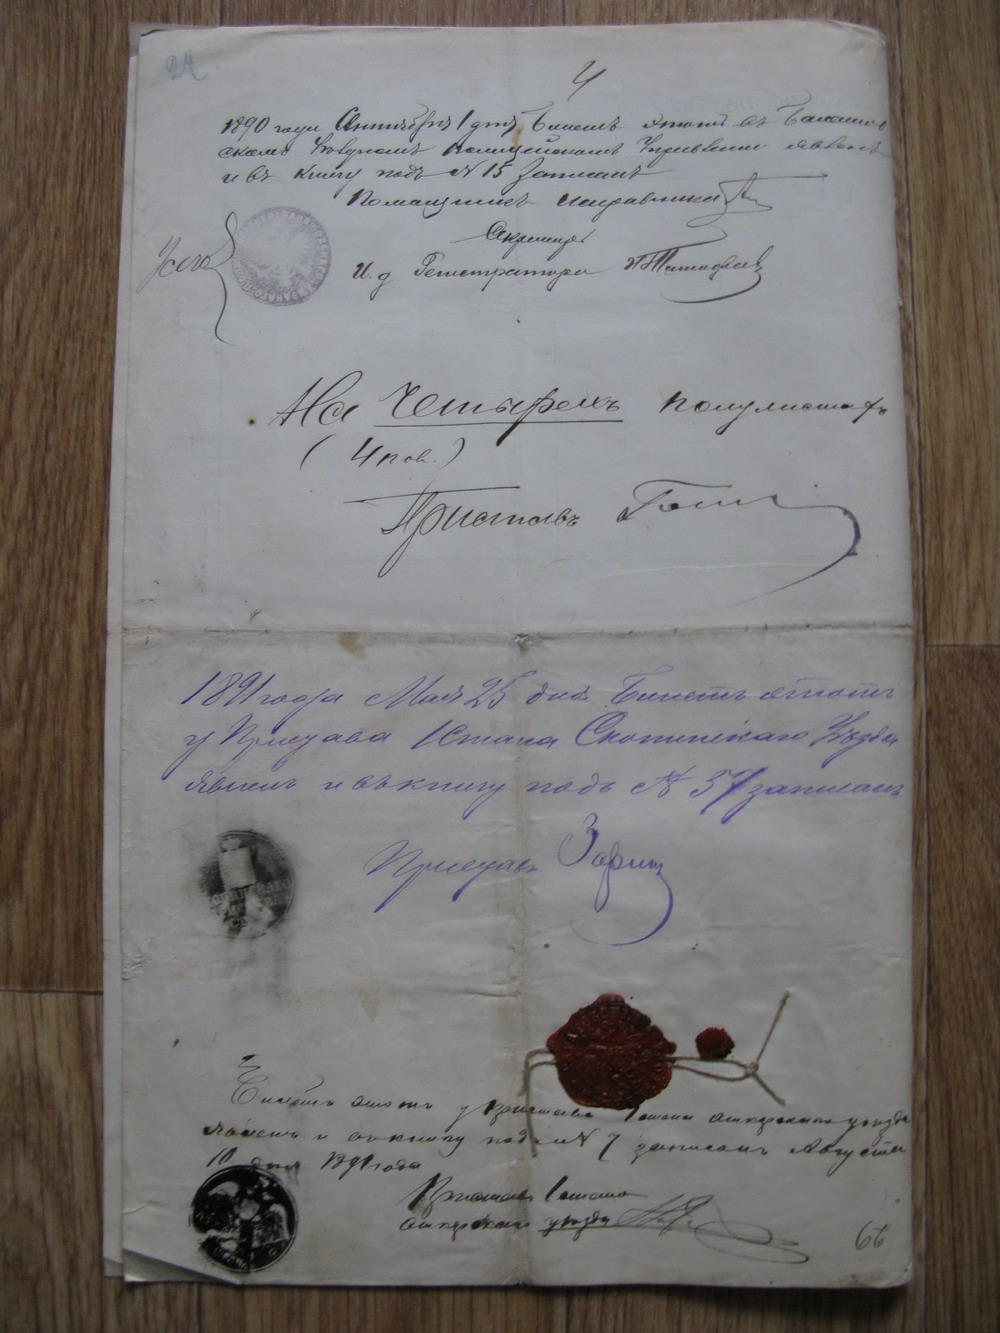 24
4
1890 года Сентября 1 дня Билетъ этотъ въ Балашов
скомъ Уѣздномъ Полицейскомъ Управленіи явленъ
и въ книгу подъ № 15 записанъ
Помощникъ Исправника
Секретарь
И. д. Регистратора
Усего
На Четырехъ полулистахъ
(4 пов.)
Приставъ
1891 года Мая 25 дня Билетъ этотъ
у Пристава 1 Стана Скопинскаго Уѣзда
явленъ и въ книгу подъ № 37 записанъ
Приставъ Зориц
Билетъ этотъ у Пристава 1 стана аткарскаго уѣзда
явленъ и въ книгу подъ № 7 записанъ Августа
10 дня 1891 года
Приставъ 1 стана
аткарскаго уѣзда
66